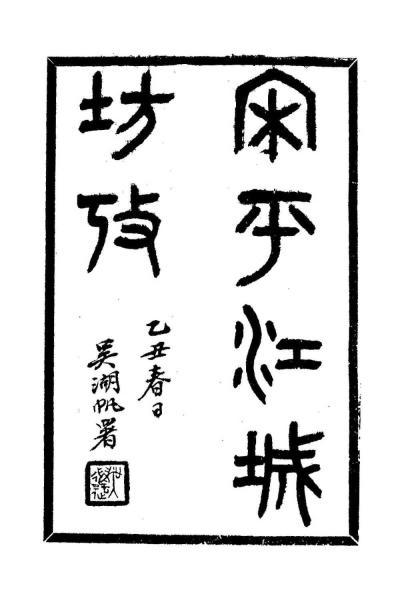 宋平江城
坊攷
乙丑春日
吴湖帆署